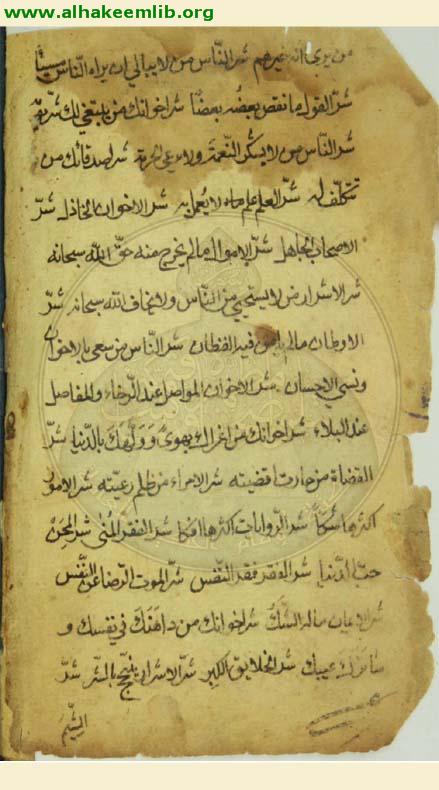 www.alhakeemlib.org
من يرى انه خيرهم شر الناس من لا يبالي ان يراه الناس مسيئا
شر القول ما نقض بعضه بعضا شر اخوانك من يبتغي لك شر يومه
شر الناس من لا يشكر النعمة ولا يرعى الحرمة شر اصدقائك من
تتكلف له شر العلم علم لا يعمل به شر الاخوان الخاذل شر
الاصحاب الجاهل شر الاموال مالم يخرج منه حق الله سبحانه
شر الاشرار من لا يستحيي من الناس ولا يخاف الله سبحانه شر
الاوطان مالم يامن فيه القطان شر الناس من سعى بالاخوان
ونسي الاحسان شر الاخوان المواصل عند الرخاء والمفاصل
عند البلاء شر اخوانك من اغراك بهوى وولهك بالدنيا شر
القضاة من جارت اقضيته شر الامراء من ظلم رعيته شر الامور
اكثرها شكا شر الروايات اكثرها افكا شر الفقر المنى شر المحن
حب الدنيا شر الفقر فقر النفس شر الموت الرضا عن النفس
شر الايمان ما دخله الشك شر اخوانك من داهنك في نفسك و
ساترك عيبك شر الخلايق الكبر شر الاشرار من يتبجح بالشر شر
الشيم